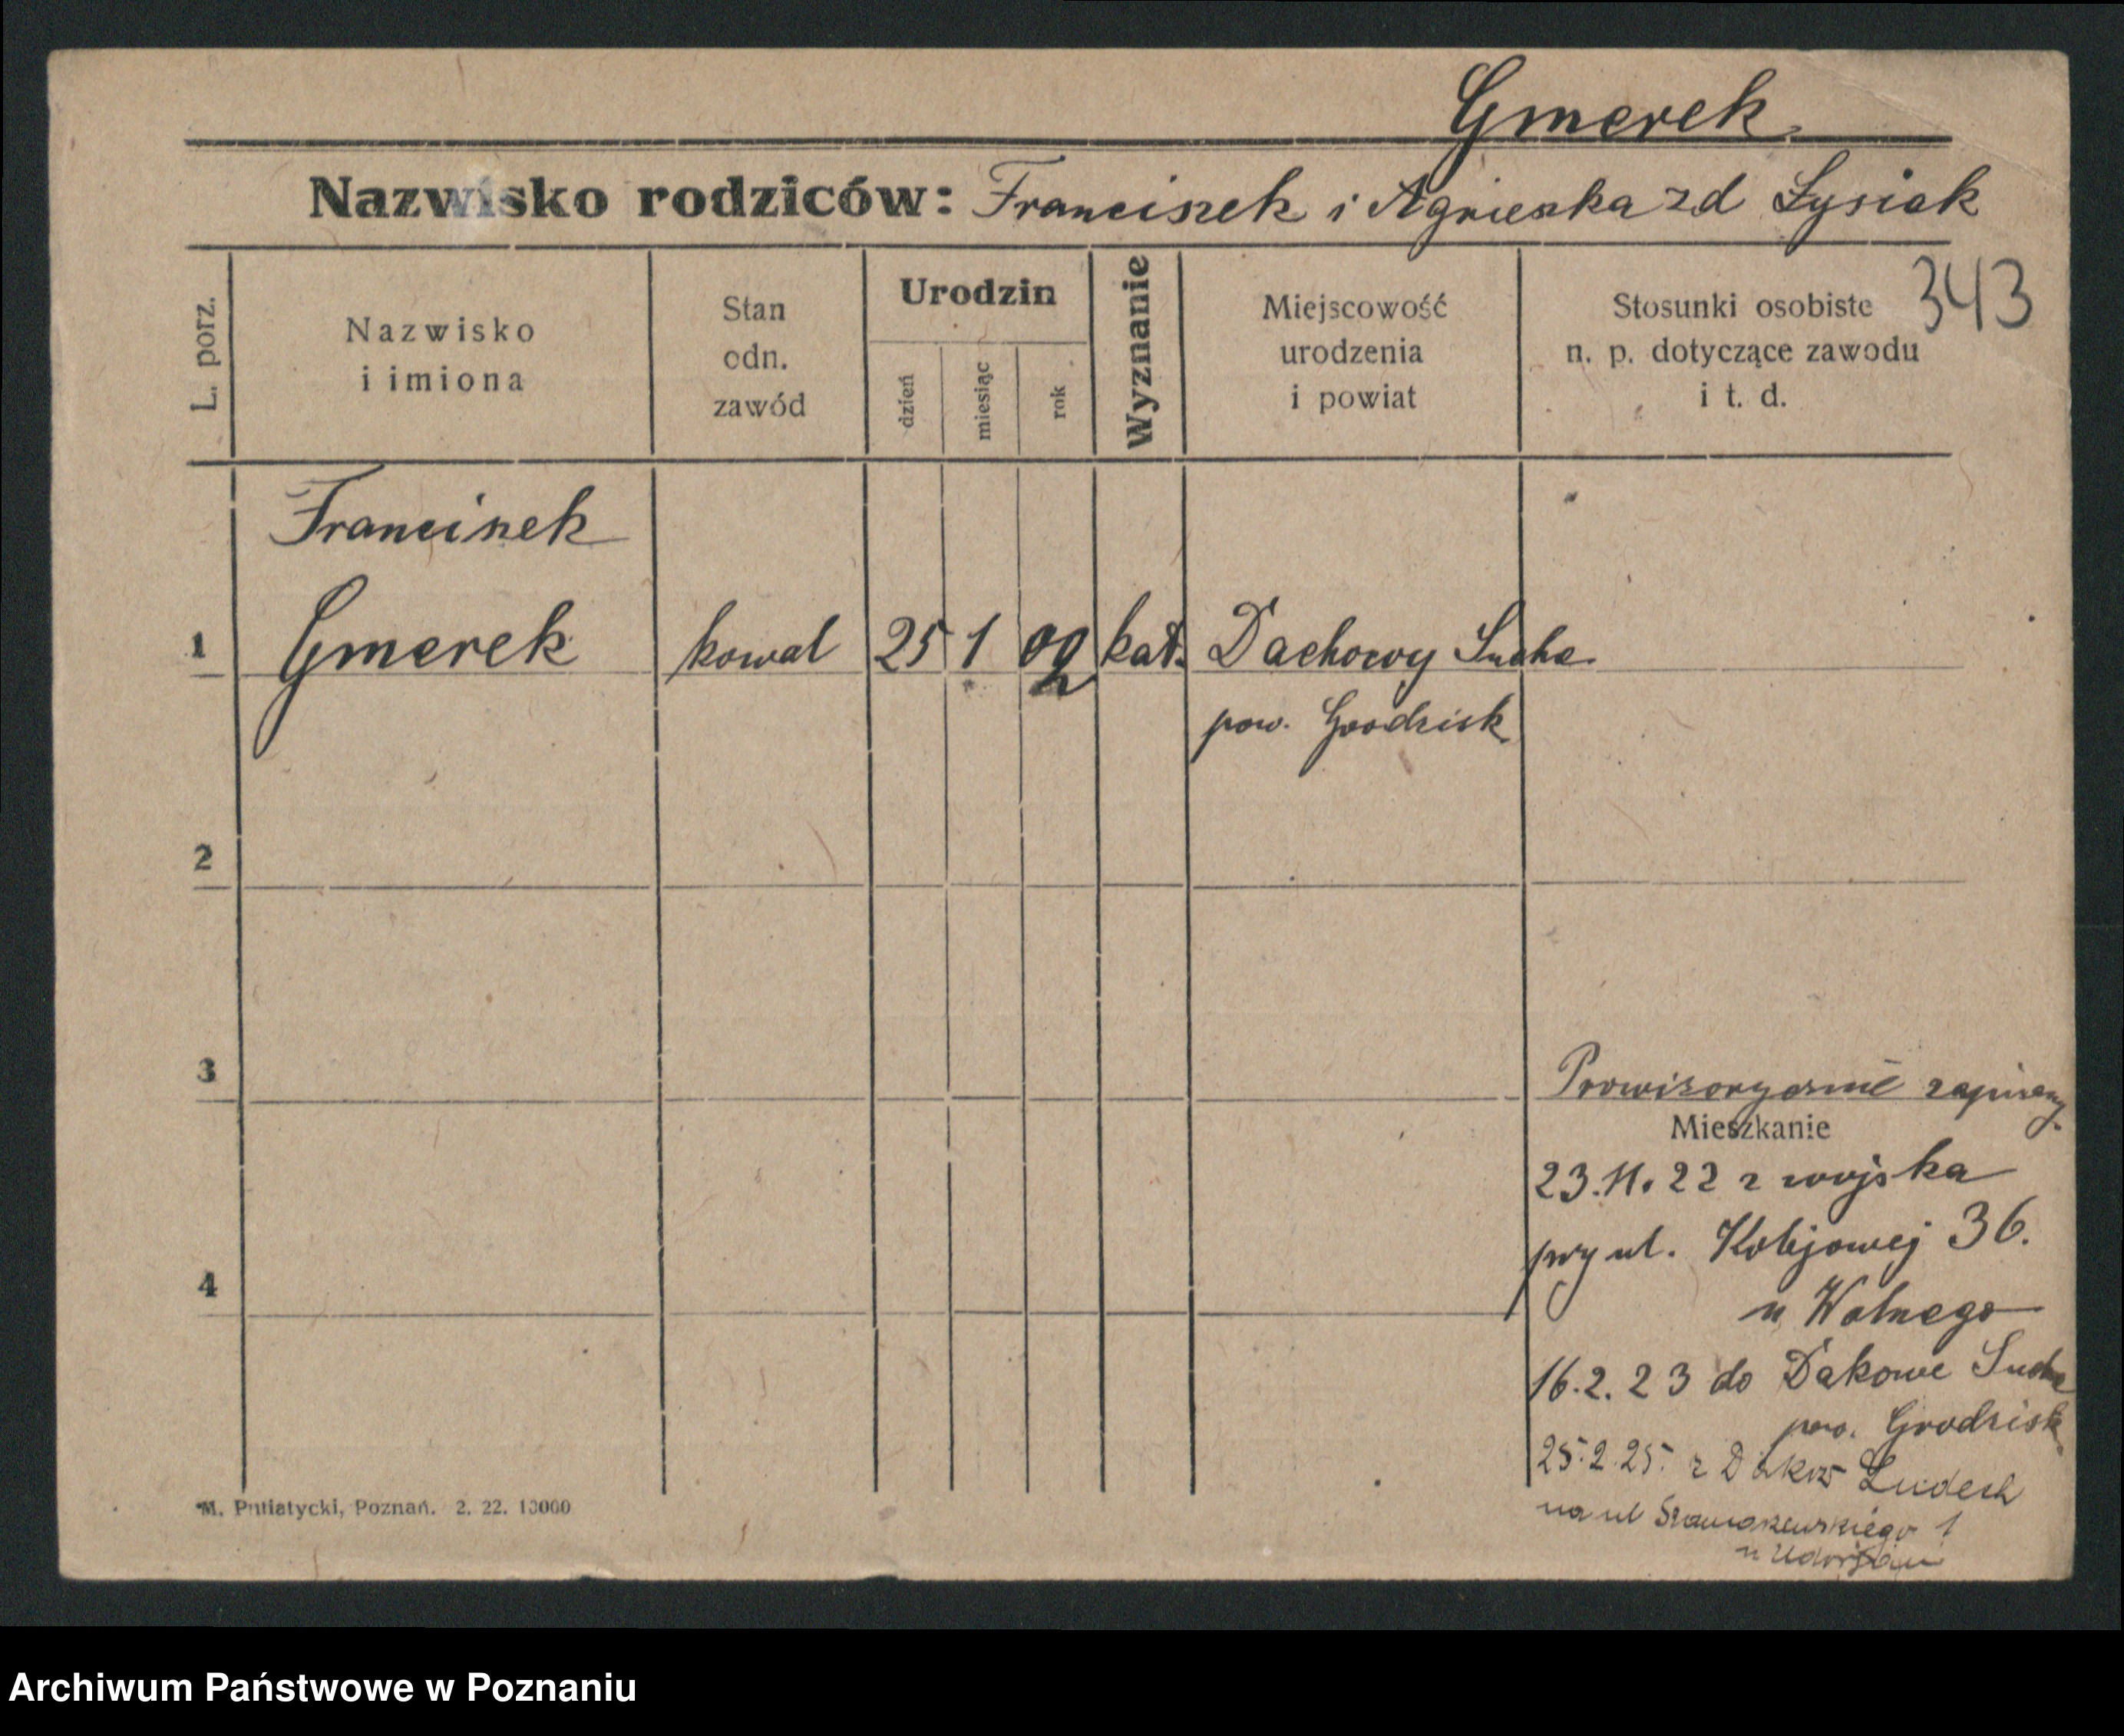 Gmerek.
Nazwisko rodziców: Franciszek i Agnieszka zd Łysiak
343
L. porz.
Nazwisko i imiona
Stan odn. zawód
Urodzin
dzień
miesiąc
rok
Wyznanie
Miejscowość urodzenia i powiat
Stosunki osobiste n. p. dotyczące zawodu i t. d.
Franciszek
1 Gmerek kowal 25 1 02 kat. Dachowy Sucha
pow. Grodzisk
2
3
Prowizorycznie zapisany.
Mieszkanie
23.11.22 z wojska
przy ul. Kolejowej 36.
4
u Wolnego
16.2.23 do Dakowe Suche
pow. Grodzisk
25.2.25. z
na ul 1
M. Putiatycki, Poznań. 2. 22. 10000
Archiwum Państwowe w Poznaniu